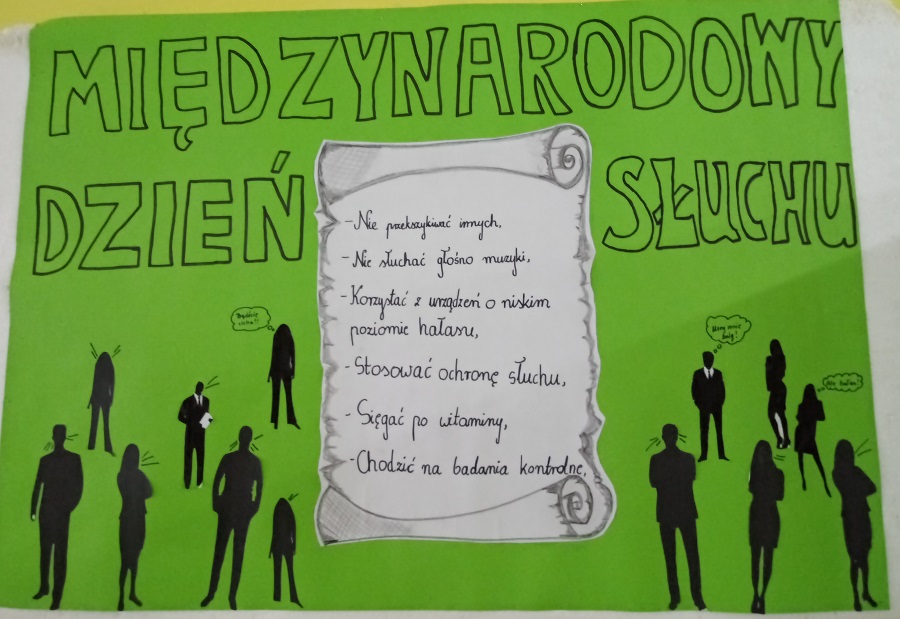 MIĘDZYNARODOWY
DZIEŃ SŁUCHU
- Nie przekrzykiwać innych,
- Nie słuchać głośno muzyki,
- Korzystać z urządzeń o niskim
poziomie hałasu,
- Stosować ochronę słuchu,
- Sięgać po witaminy,
- Chodzić na badania kontrolne,
Bądźcie
cicho!!
Uszy mnie
bolą!